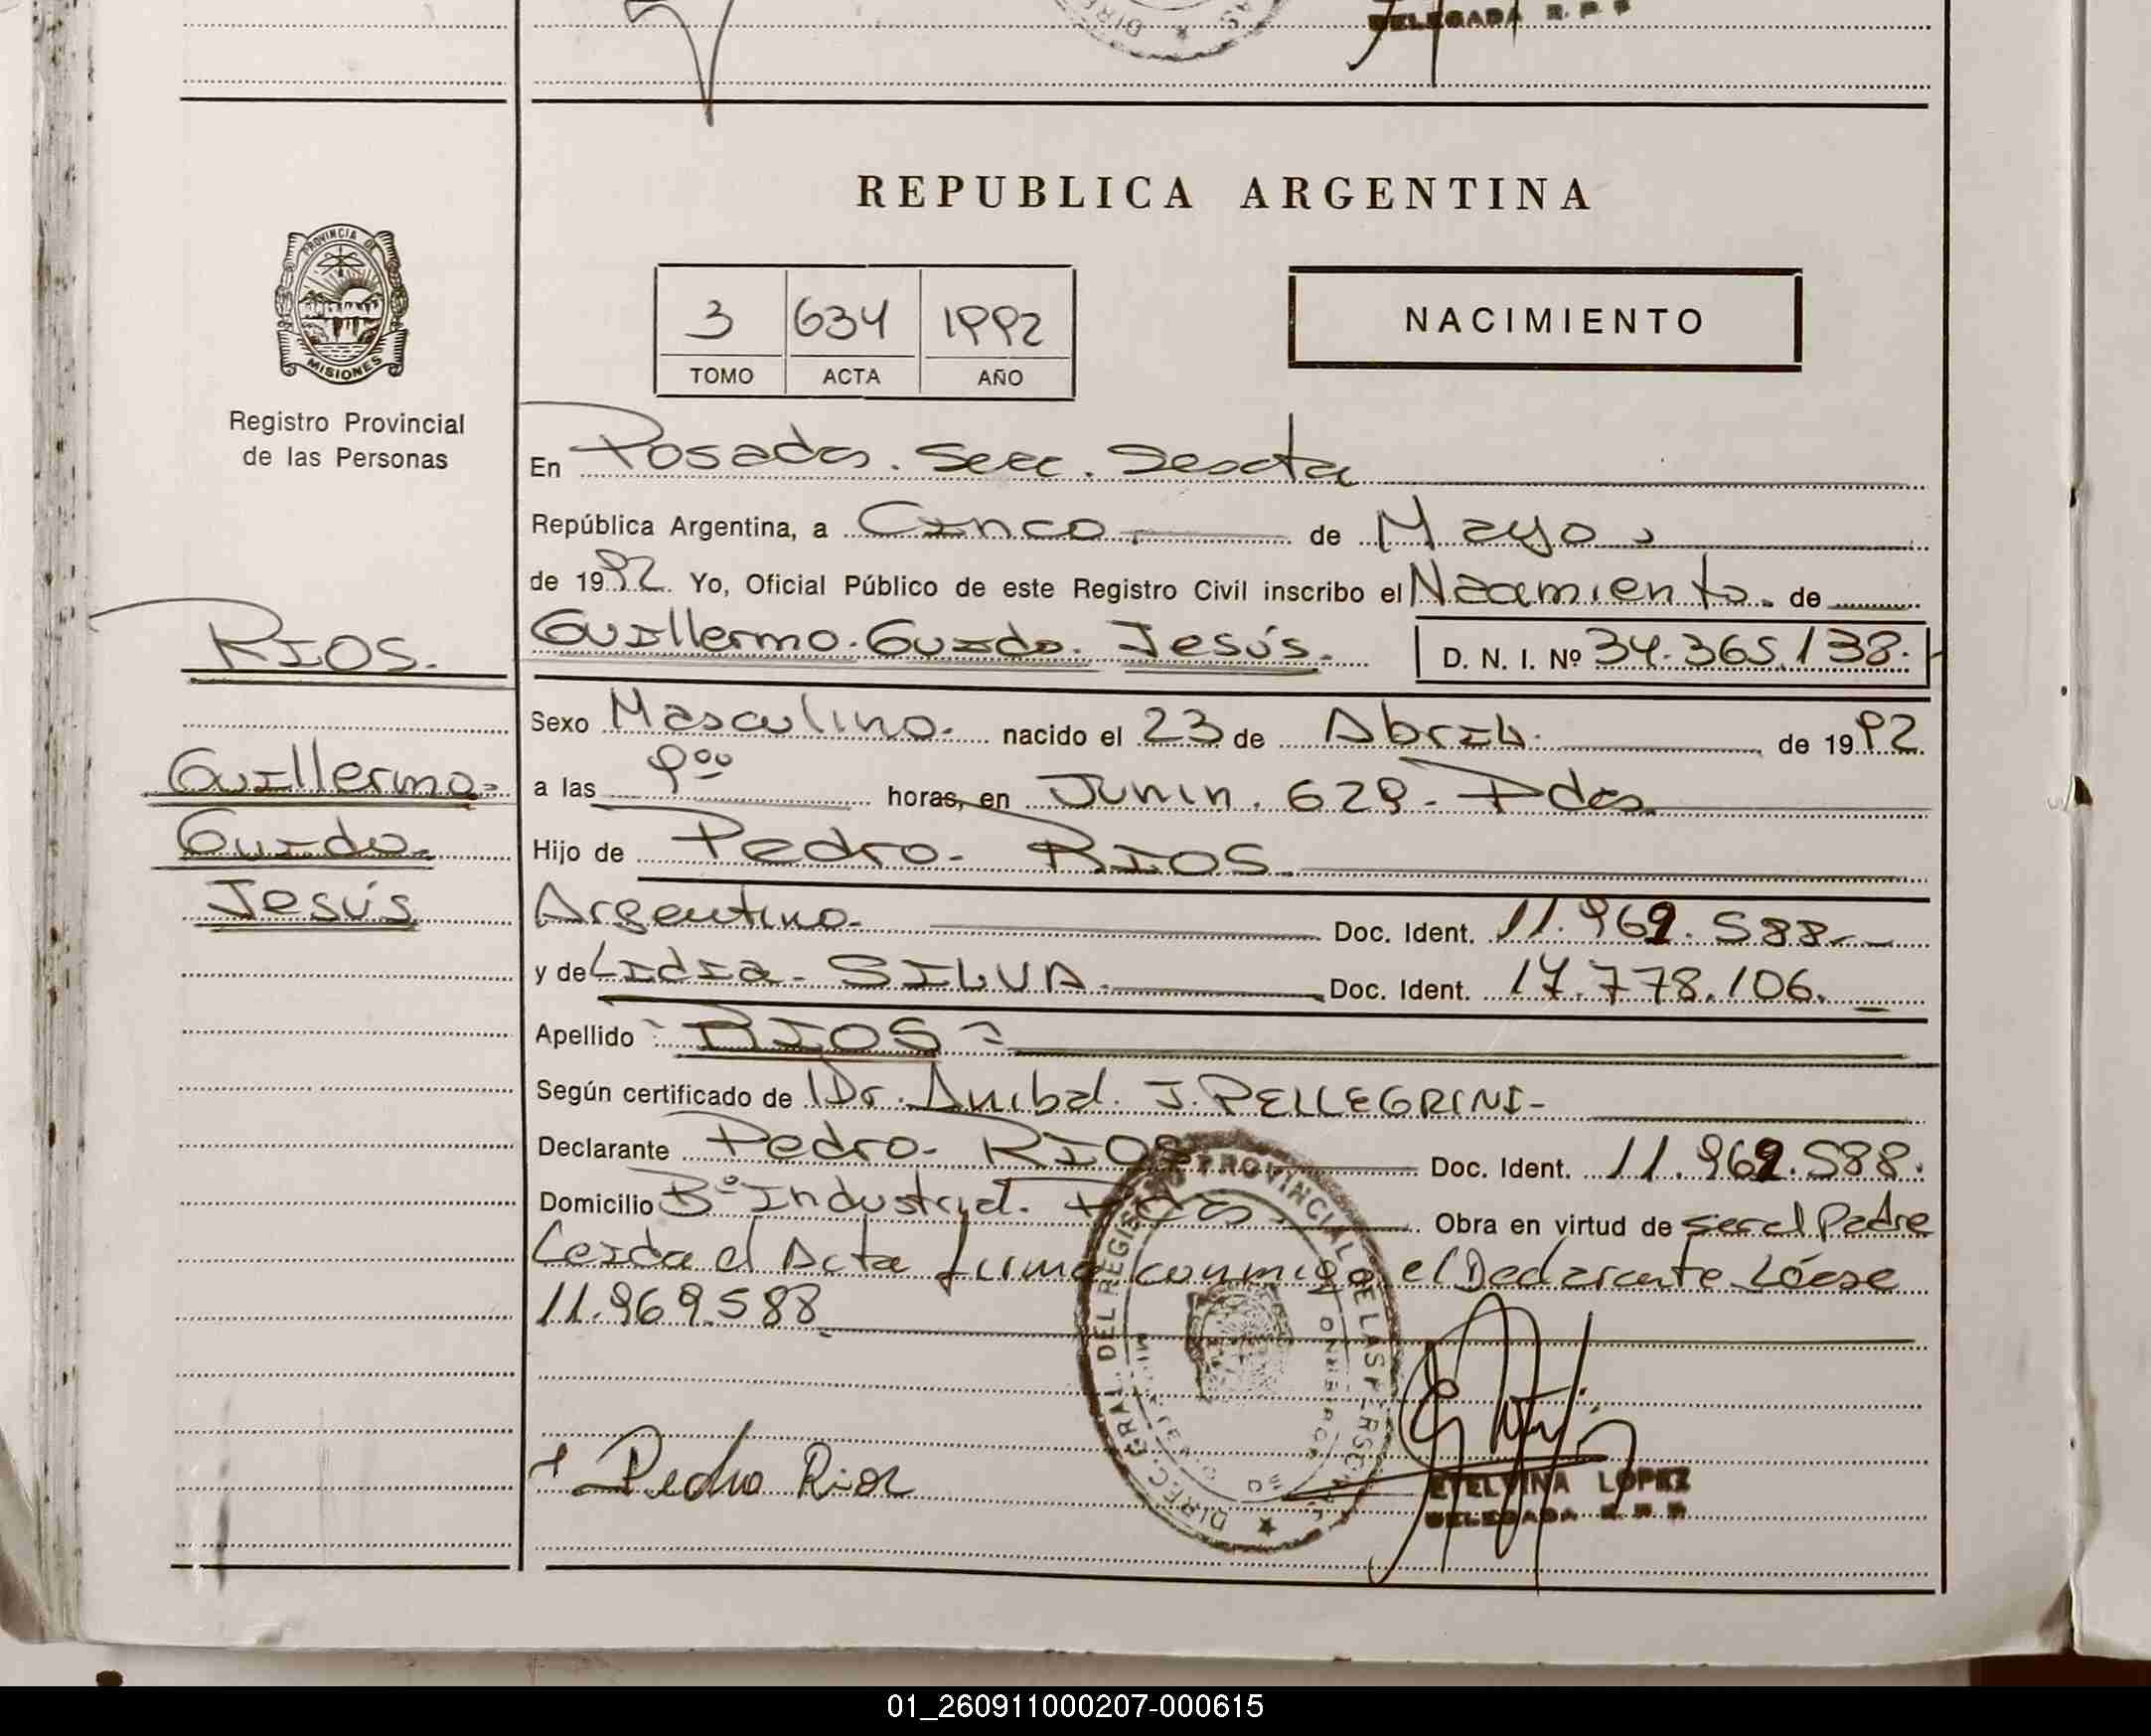 DELEGADA R. P. P
REPUBLICA ARGENTINA
PROVINCIA DE
MISIONES
Registro Provincial
de las Personas
3 634 1992
TOMO ACTA AÑO
NACIMIENTO
En Posadas. Secc. Sexta
República Argentina, a Cinco de Mayo
de 1992. Yo, Oficial Público de este Registro Civil inscribo el Nacimiento. de
RIOS.
Guillermo. Guido. Jesús. D. N. I. Nº 34.365.138.
Sexo Masculino. nacido el 23 de Abril. de 1992
Guillermo=
Guido.
Jesús
a las 9⁰⁰ horas, en Junin. 629. Pdas.
Hijo de Pedro. RIOS.
Argentino. Doc. Ident. 11.969.588.
y de Lidia. SILVA. Doc. Ident. 17.778.106.
Apellido = RIOS =
Según certificado de Dr. Anibal. J. PELLEGRINI-
Declarante Pedro. RIOS Doc. Ident. 11.969.588.
Domicilio Bº Industrial. Pdas. Obra en virtud de ser el Padre
Leida el Acta firma conmigo el Declarante Léese
11.969.588
DIREC. GRAL. DEL REGISTRO PROVINCIAL DE LAS PERSONAS
Pedro Rios
ETELVINA LOPEZ
DELEGADA R. P. P
01_260911000207-000615